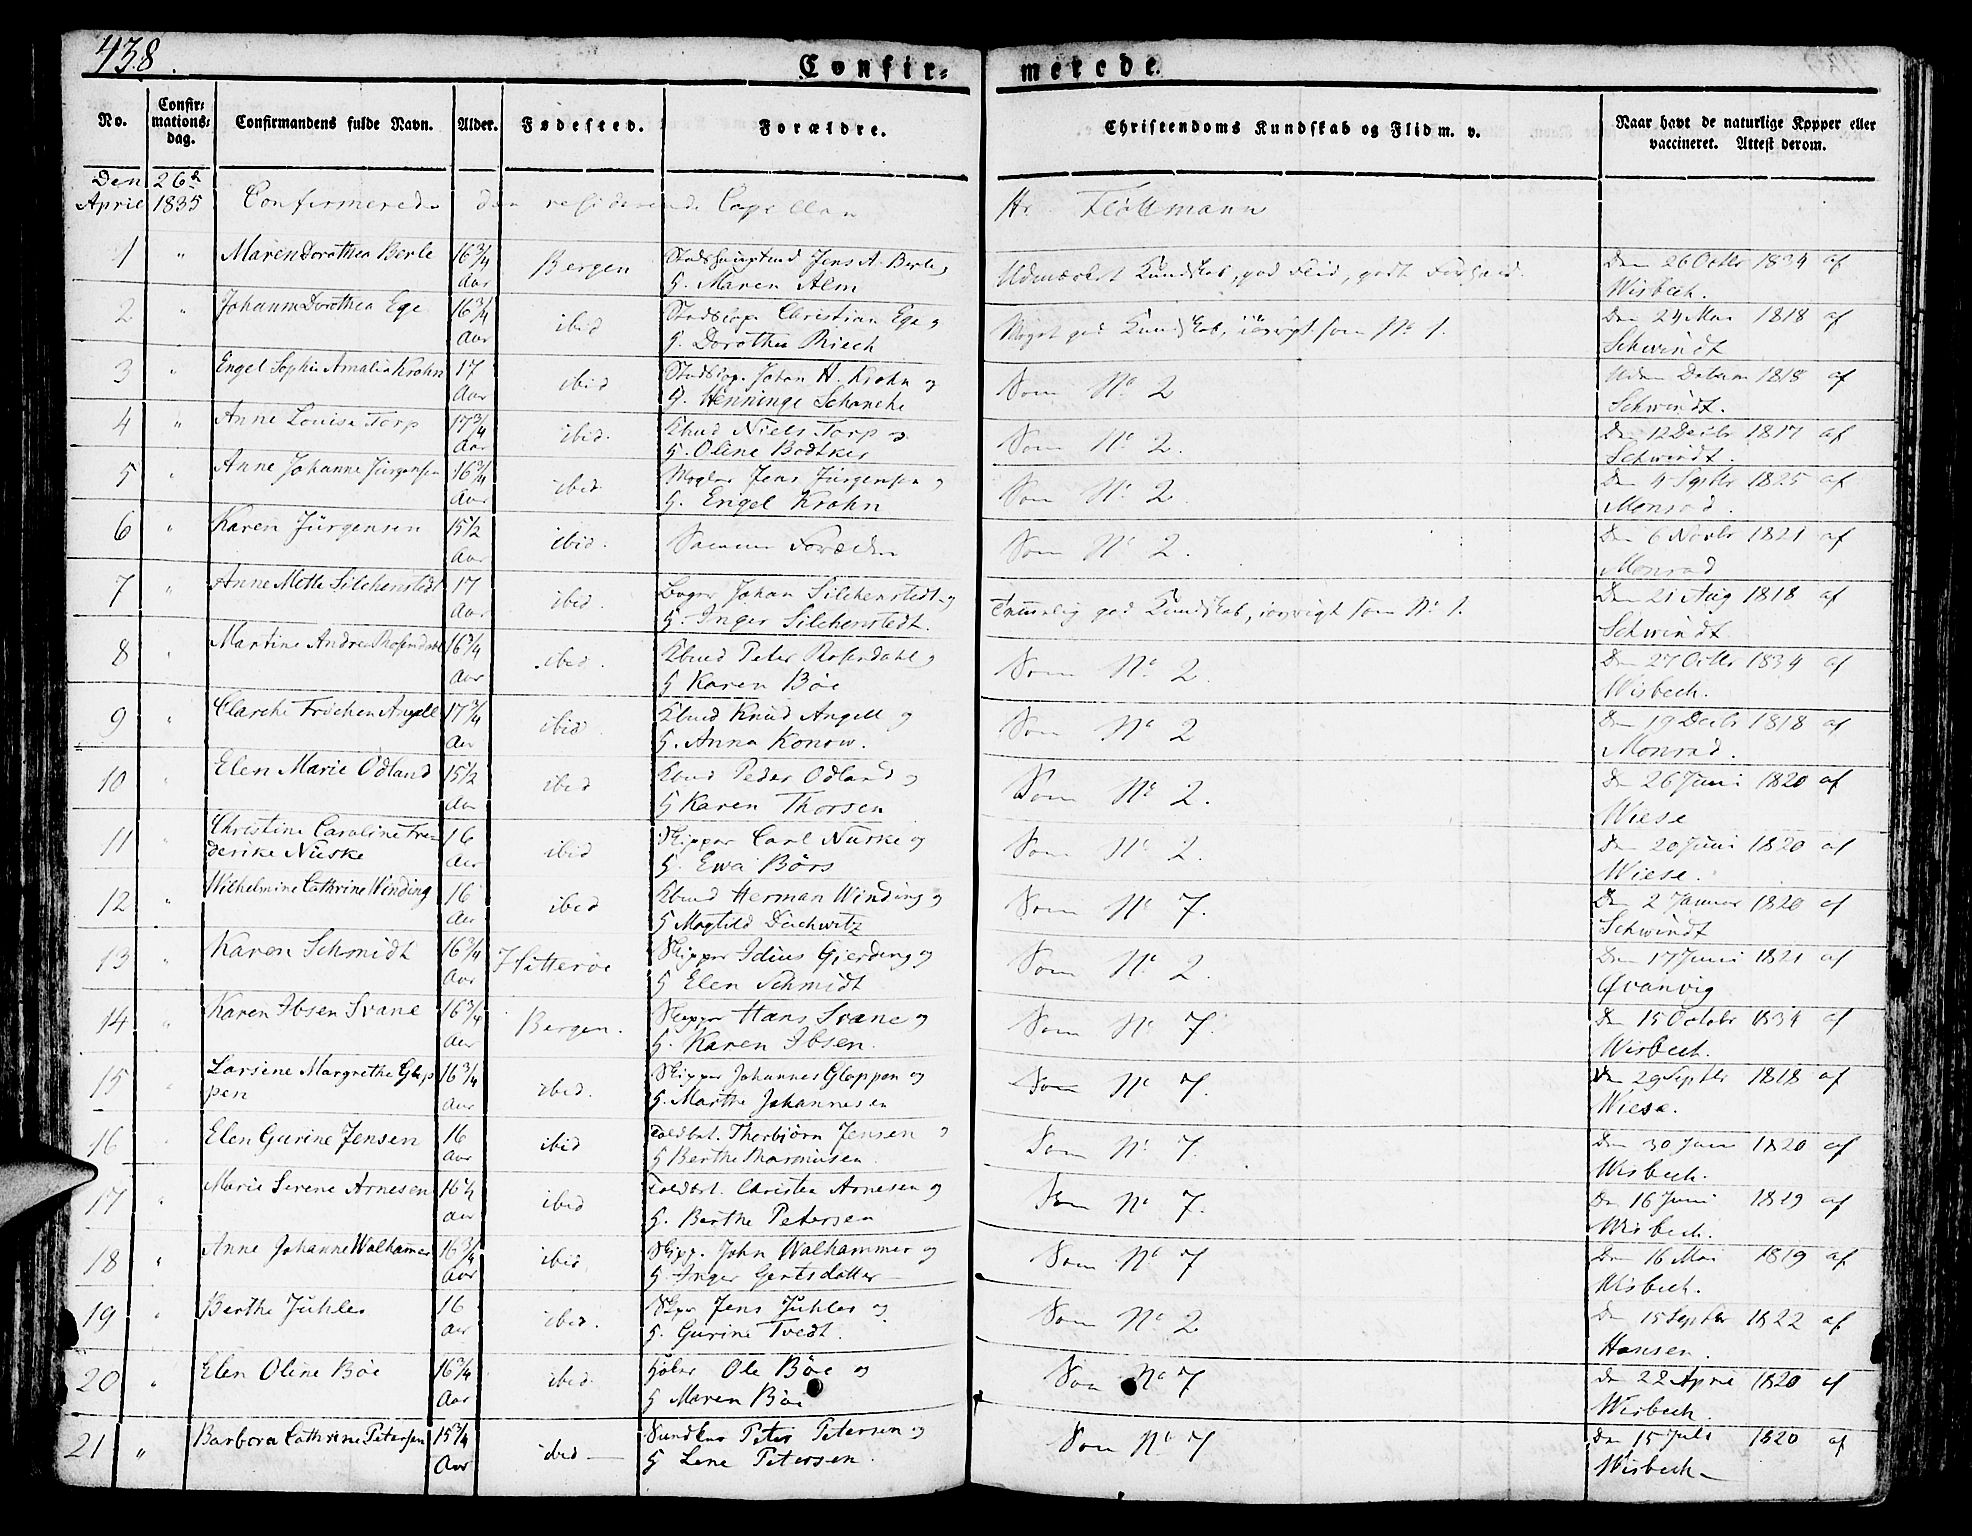 438.
Confir= merede.
No. Confir= mations= dag. Confirmandens fulde Navn. Alder. Fødested. Forældre. Christendoms Kundskab og Flid m. v. Naar havt de naturlige Kopper eller vaccineret. Attest derom.
Den 26de
April 1835 Confirmerede den residerende Capellan Hr. Flottmann
1 " Maren Dorothea Berle 16 3/4 Bergen Jens A. Berle, Udmærket Kundskab, god Flid, godt Forhold. Den 26 Octbr 1834 af
Aar H. Maren Alm Wisbech.
2 " Johanne Dorothea Ege 16 3/4 ibid Christian Ege og Meget god Kundskab, iøvrigt som No 1. Den 24 Mai 1818 af
Aar H. Dorothea Riech Schwindt
3 " Engel Sophie Amalia Krohn 17 ibid Johan H. Krohn og Som No 2 Uden Datum 1818 af
Aar H. Henninge Schanche Schwindt.
4 " Anne Louise Torp 17 3/4 ibid. Kbmd Niels Torp og Som No 2. Den 12 Decbr 1817 af
Aar H. Oline Bødtker Schwindt.
5 " Anne Johanne Jürgensen 16 3/4 ibid Mægler Jens Jürgensen og Som No 2. Den 4 Septbr 1825 af
Aar H. Engel Krohn Monrad.
6 " Karen Jürgensen 15 1/2 ibid. Samme Forældre Som No 2. Den 6 Novbr 1821 af
Aar Monrad
7 " Anne Mette Silchenstedt 17 ibid. Bager Johan Silchenstedt og Temmelig god Kundskab, iøvrigt som No 1. Den 21 Aug 1818 af
Aar H. Inger Silchenstedt. Schwindt
8 " Martine Andrea Rosendahl 16 3/4 ibid. Kbmd Peter Rosendahl og Som No 2. Den 27 Octbr 1834 af
Aar H Karen Böe Wisbech.
9 " Angell 17 3/4 ibid. Kbmd Knud Angell og Som No 2 Den 19 Decbr 1818 af
Aar H. Anna Konow. Monrad.
10 " Elen Marie Odland 15 1/2 ibid Kbmd Peder Odland og Som No 2. Den 26 Juni 1820 af
Aar H Karen Thorsen Wiese
11 " Christine Caroline Fre= 16 ibid Skipper Carl Nuske og Som No 2. Den 20 Juni 1820 af
derike Nüske Aar H. Ewa Börs Wiese.
12 " Wilhelmine Cathrine Winding 16 ibid Kbmd Herman Winding og Som No 7. Den 2 Januar 1820 af
Aar H Magtild Schwindt
13 " Karen Schmidt 16 3/4 Hitterøe Skipper Idius Gjerding og Som No 2. Den 17 Juni 1821 af
Aar H Elen Schmidt Qvanvig
14 " Karen Ibsen Svane 16 3/4 Bergen. Skipper Hans Svane og Som No 7. Den 15 Octobr 1834 af
Aar H. Karen Ibsen. Wisbech.
15 " Larsene Margrethe Glop= 16 3/4 ibid. Skipper Johannes Gloppen og Som No 7. Den 29 Septbr 1818 af
pen Aar H. Marthe Johannesen Wiese.
16 Elen Gurine Jensen 16 ibid Toldbet. Thorbjörn Jensen og Som No 7. Den 30 Juni 1820 af
Aar H Berthe Rasmusen. Wisbech.
17 " Marie Serene Arnesen 16 1/4 ibid Toldbet. Christen Arnesen og Som No 7. Den 16 Juni 1819 af
Aar H. Berthe Petersen Wisbech.
18 " Anne Johanne Walhammer 16 3/4 ibid. Skipp. John Walhammer og Som No 7 Den 16 Mai 1819 af
Aar H. Inger Gertsdatter Wisbech.
19 " Berthe Juhler 16 ibid. Skpr Jens Juhler og Som No 2 Den 15 Septbr 1822 af
Aar H. Gurine Tvedt. Hansen.
20 " Elen Oline Böe 16 3/4 ibid Høker Ole Böe og Som No 7 Den 22 April 1820 af
Aar H Maren Böe Wisbech.
21 " Barbora Cathrine Petersen 15 3/4 ibid Peter Petersen og Som No 7 Den 15 Juli 1820 af
Aar H Lene Petersen. Wisbech